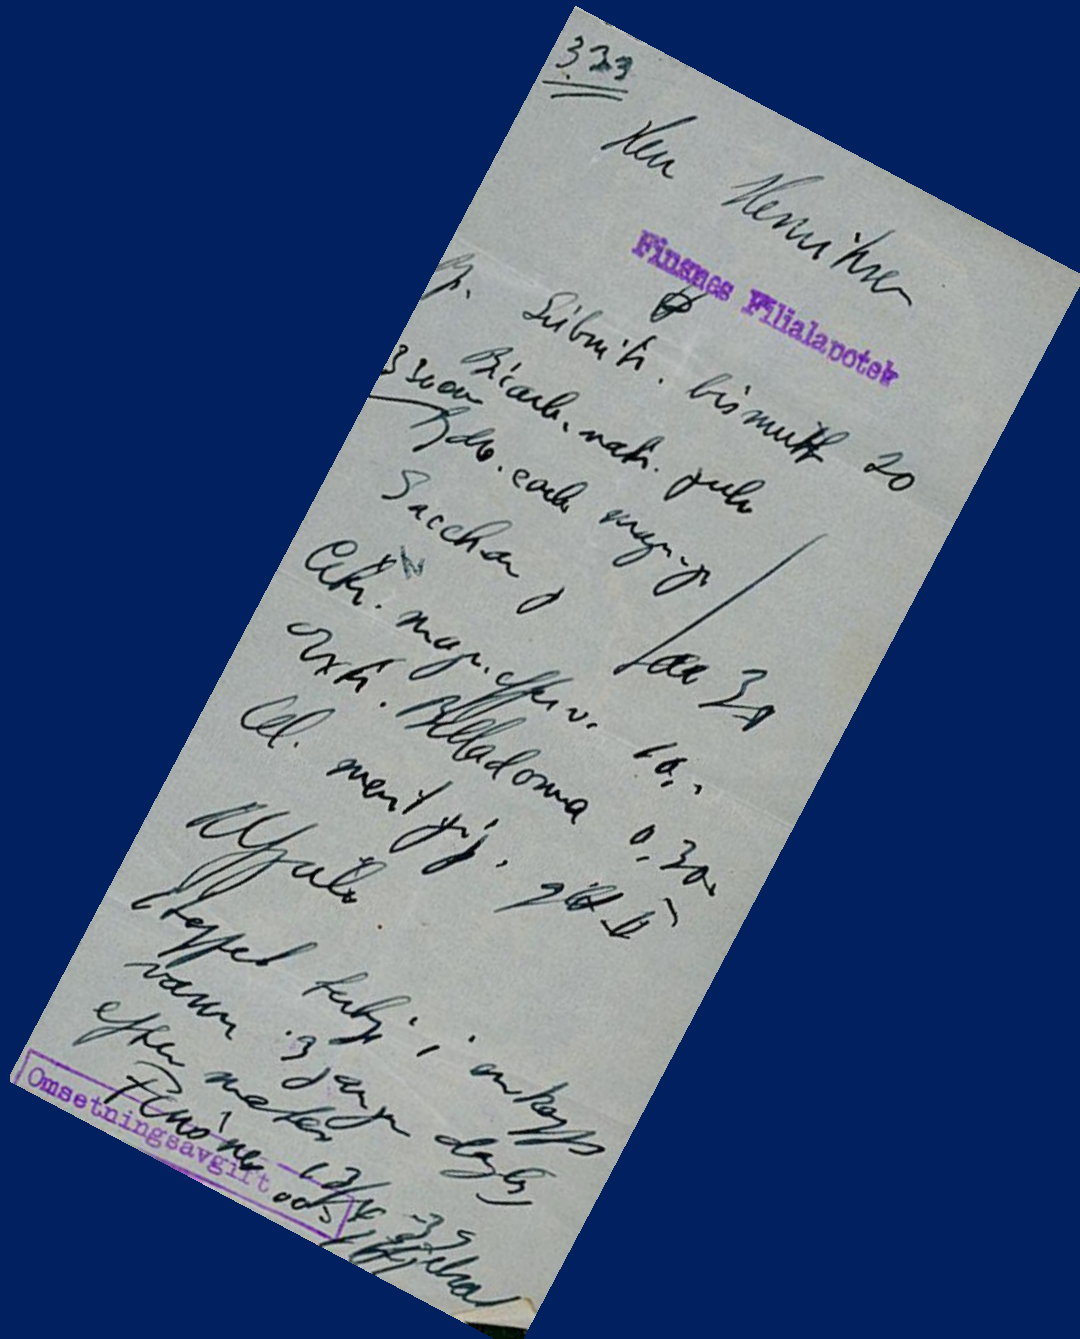 323
Herr Henriksen
Finsnes Filialapotek
Rp.
Subnitr. bismuth 20
Bicarb. natr. pulv
carb. magn.
Sacchar
aa 30
Citr. magn. efferv. 10.
Extr. Belladonna 0.30.
Ol. menth. pip. gtt II
M f pulv
i en kopp
vann 3 ganger daglig
efter maten
Finsnes 13/4 -39
Omsetningsavgift